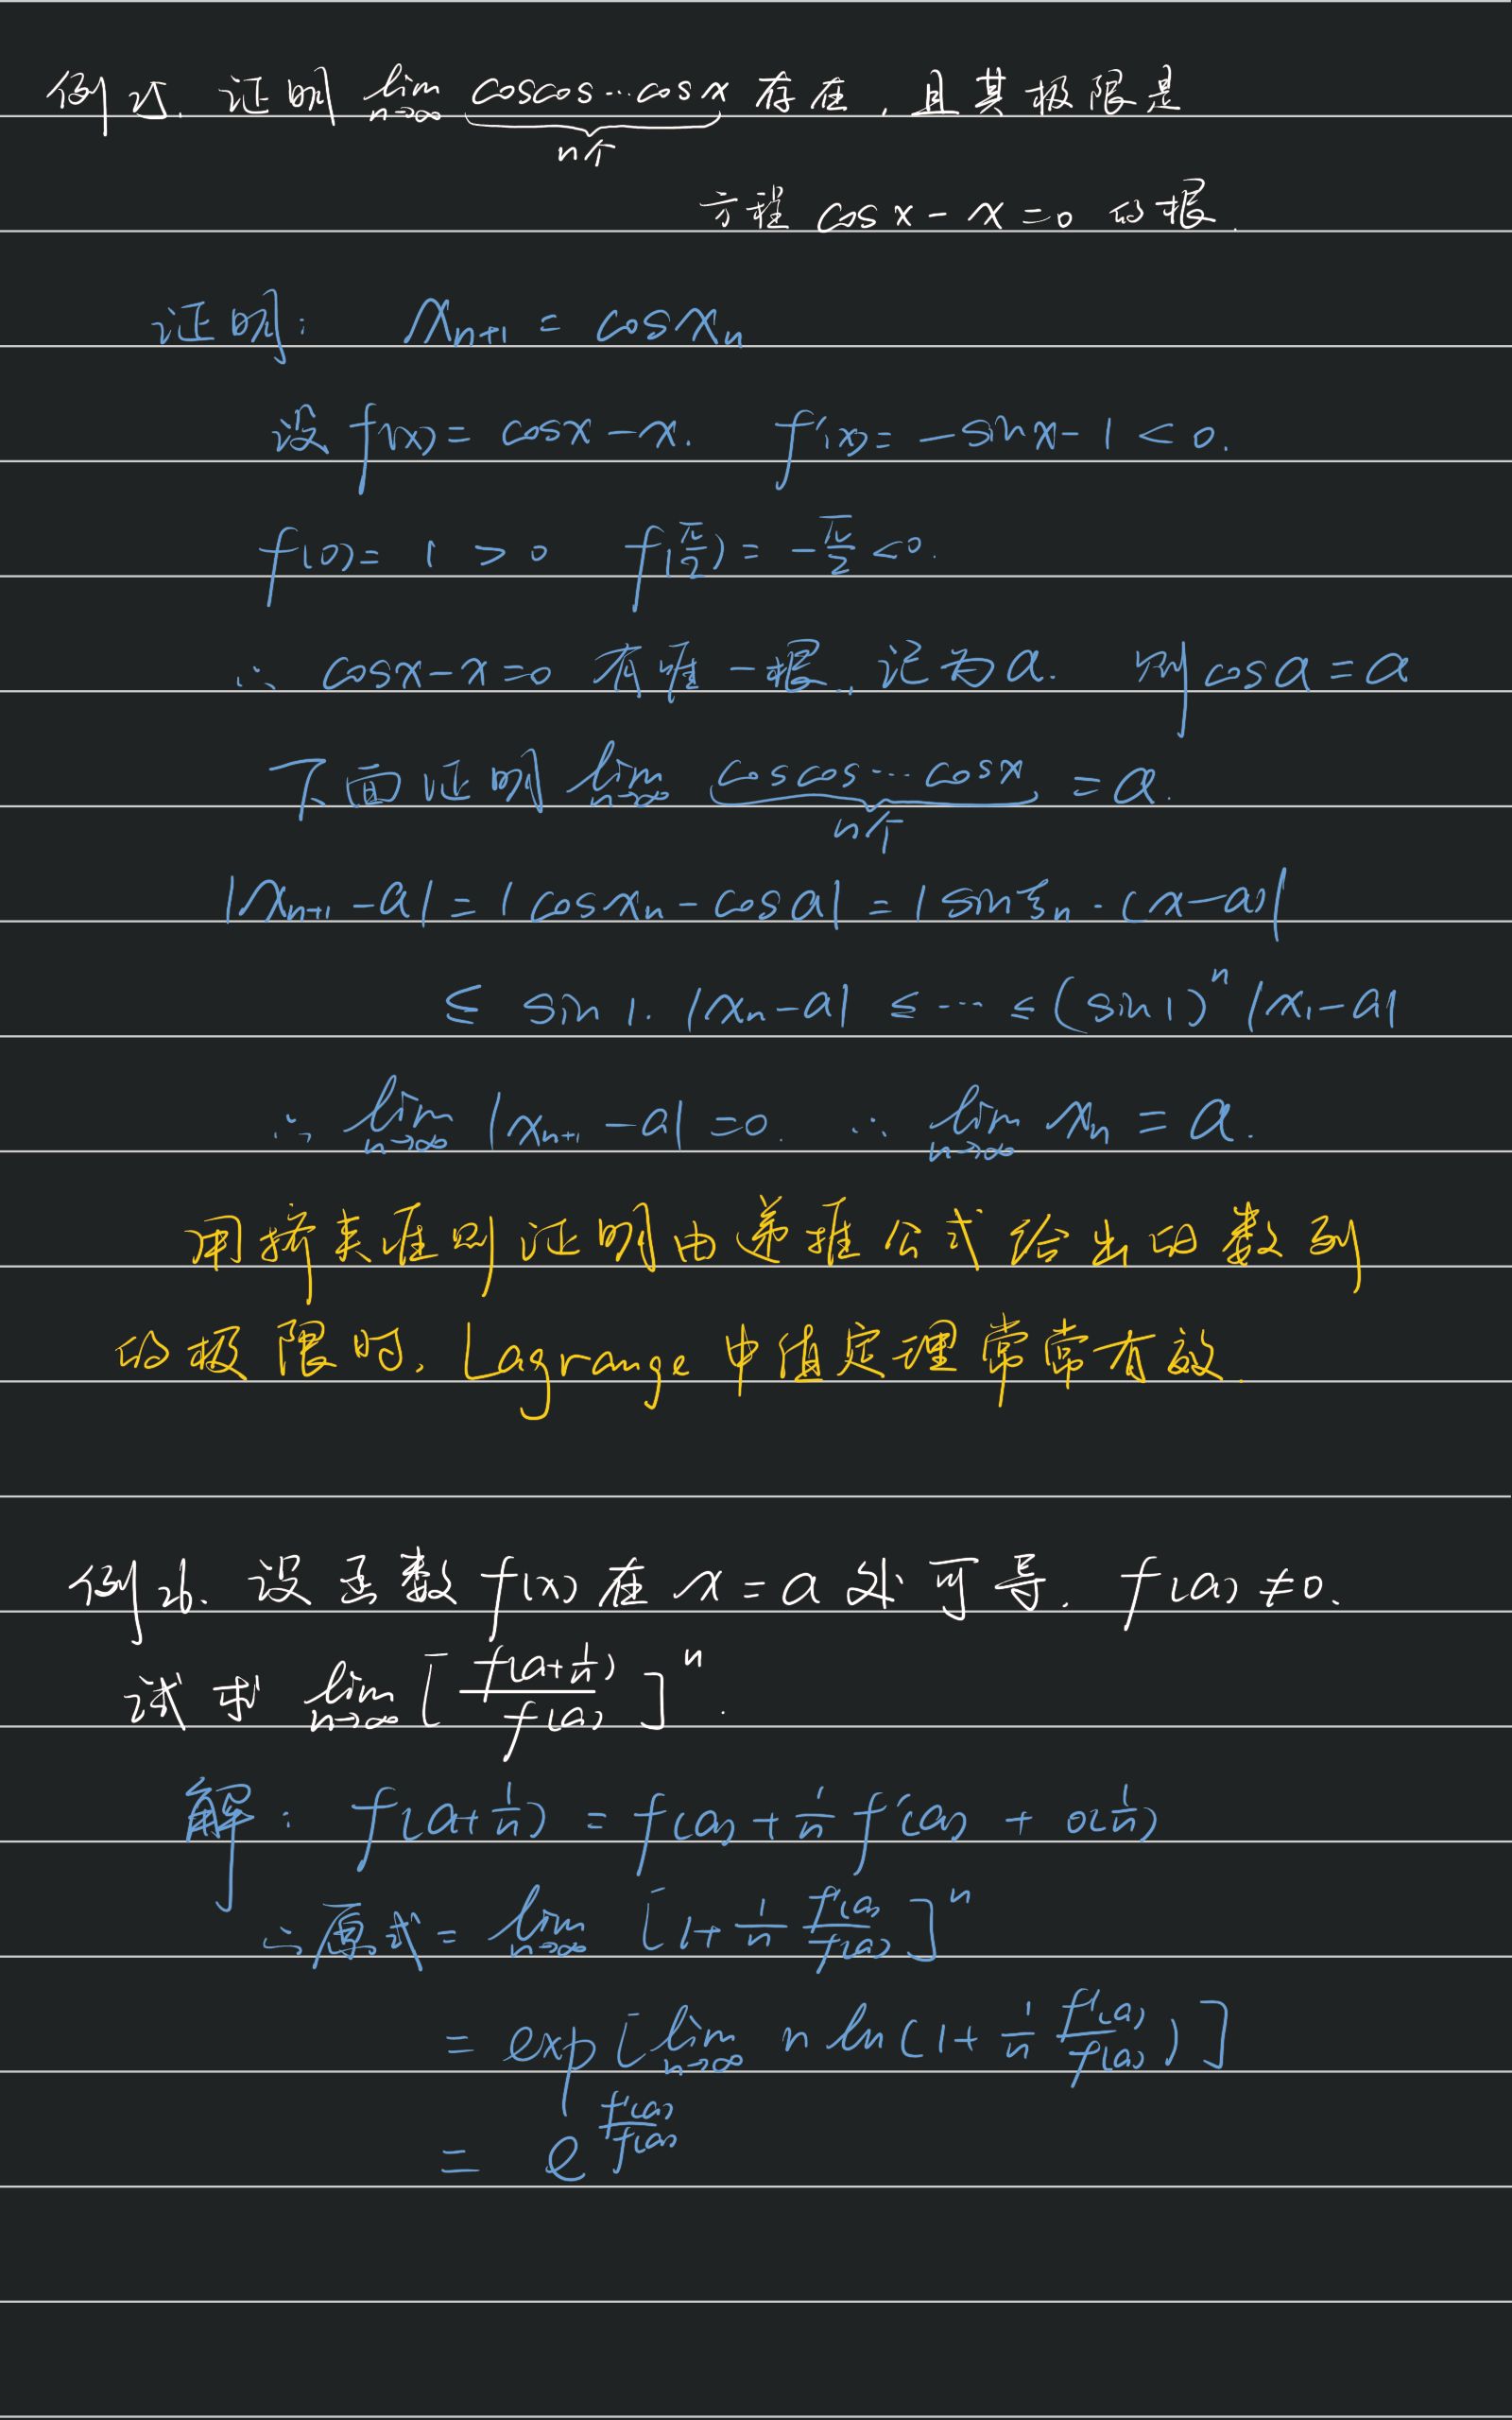 例25. 证明 lim_{n→∞} coscos…cosx 存在,且其极限是
n个
方程 cosx-x=0 的根.
证明: x_{n+1} = cosx_n
设 f(x)= cosx-x. f'(x)= -sinx-1<0.
f(0)= 1 >0 f(π/2)= -π/2 <0.
∴ cosx-x=0 有唯一根,记为a. 则cosa=a
下面证明 lim_{n→∞} coscos…cosx =a.
n个
|x_{n+1}-a|=|cosx_n-cosa|=|sinξ_n·(x-a)|
≤ sin1·|x_n-a| ≤…≤(sin1)^n|x_1-a|
∴ lim_{n→∞} |x_{n+1}-a|=0. ∴ lim_{n→∞} x_n=a.
用挤夹准则证明由递推公式给出的数列
的极限时, Lagrange中值定理常常有效.
例26. 设函数f(x)在x=a处可导. f(a)≠0.
试求 lim_{n→∞} [f(a+1/n)/f(a)]^n.
解: f(a+1/n) = f(a)+1/n f'(a) + o(1/n)
∴原式= lim_{n→∞} [1+1/n f'(a)/f(a)]^n
= exp[lim_{n→∞} n ln(1+1/n f'(a)/f(a))]
= e^{f'(a)/f(a)}